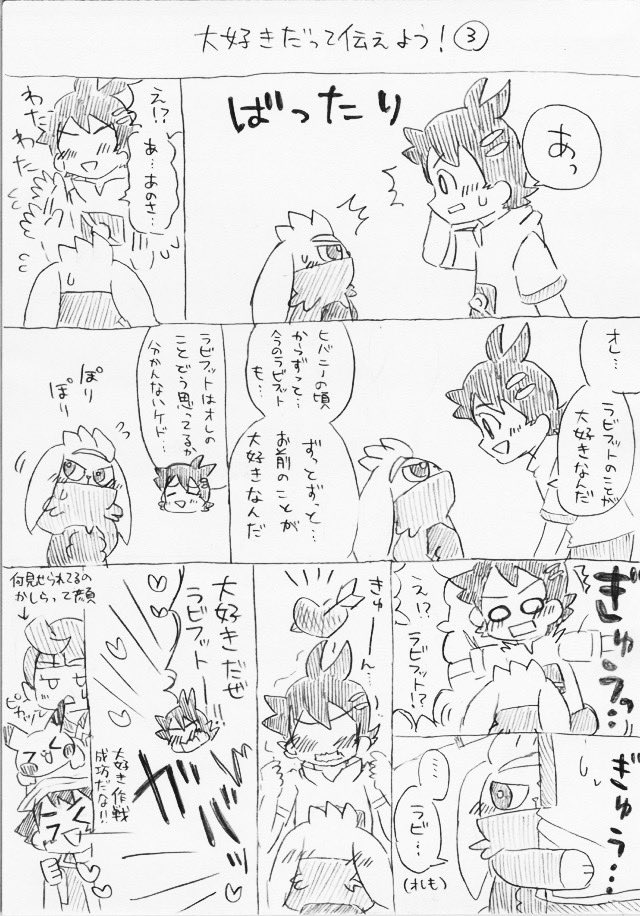 大好きだって伝えよう！③
ばったり
あっ
え!?
あ…あのさ…
わた
わた
オレ…
ラビフットのことが
大好きなんだ
ヒバニーの頃
からずって…
今のラビフット
も…
ずっとずっと…
お前のことが
大好きなんだ
ラビフットはオレの
ことどう思ってるか
分かんないケド…
ぽり
ぽり
ぎゅっ…
え!?
ラビフット!?
ぎゅう…
……
ラビ…
(オレも)
きゅーん…
大好きだぜ
ラビフットー
ガバッ
何見せられてるの
かしらって顔
ピカッ
大好き作戦
成功だな!!